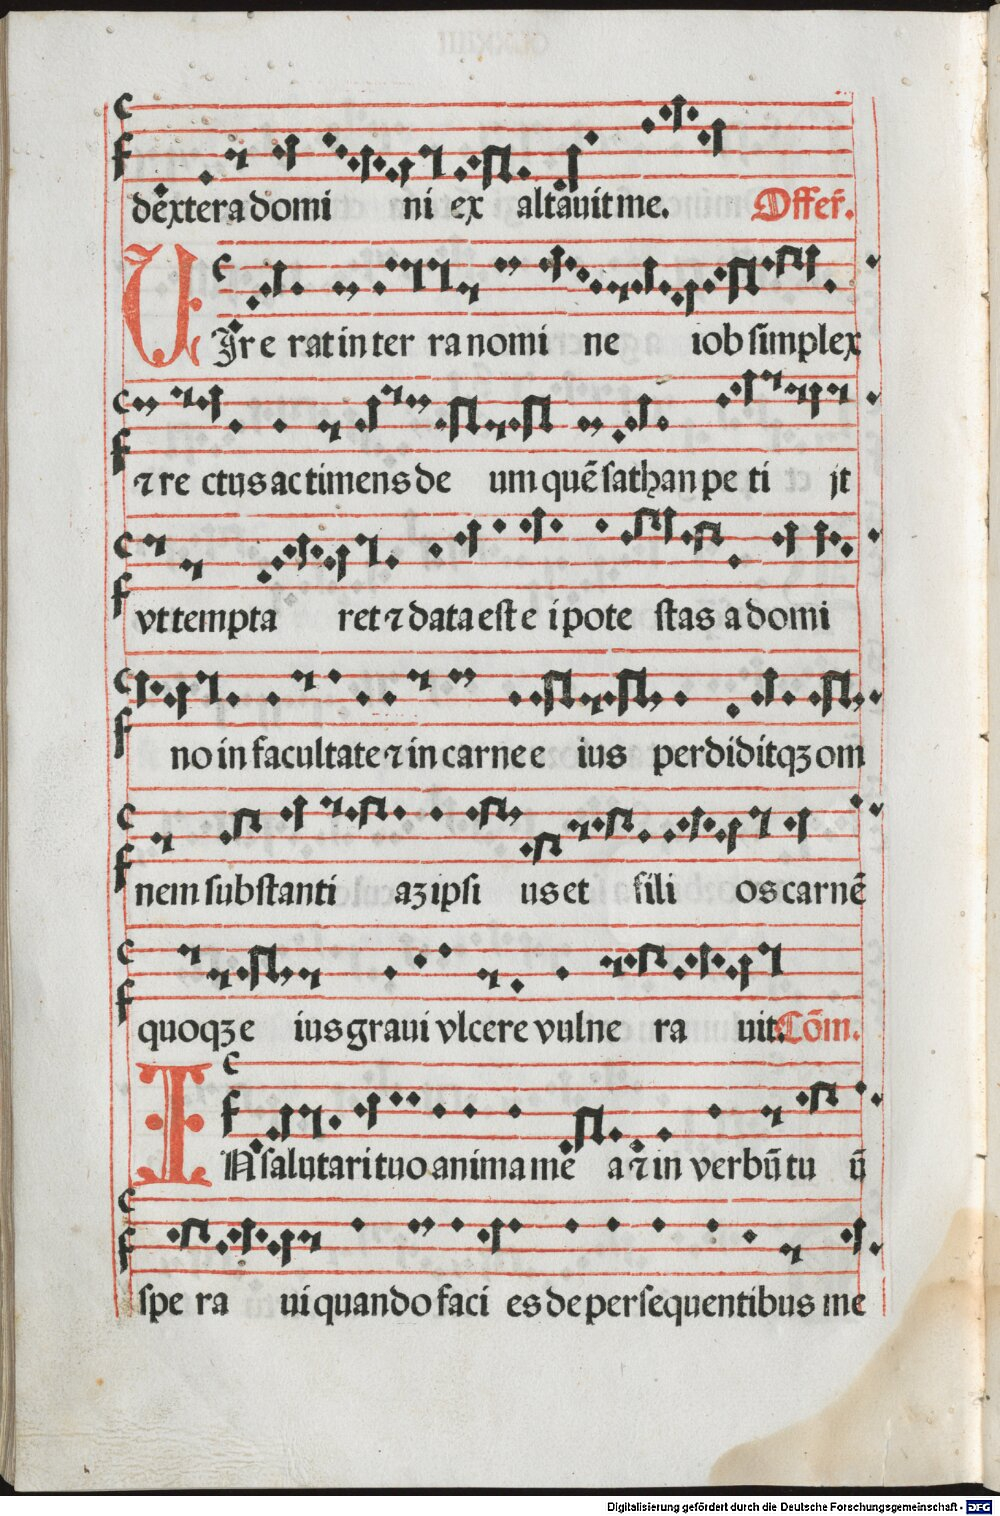 dextera domi ni ex altauit me. Offer̄.
VIr erat in ter ra nomi ne iob simplex
⁊ re ctus ac timens de um quē sathan pe ti jt
vt tempta ret ⁊ data est e i pote stas a domi
no in facultate ⁊ in carne e ius perdiditqꝫ om
nem substanti aꝫ ipsi us et fili os carnē
quoqꝫ e ius graui vlcere vulne ra uit. Cōm.
IN salutari tuo anima mē a ⁊ in verbū tu ū
spe ra ui quando faci es de persequentibus me
Digitalisierung gefördert durch die Deutsche Forschungsgemeinschaft - DFG